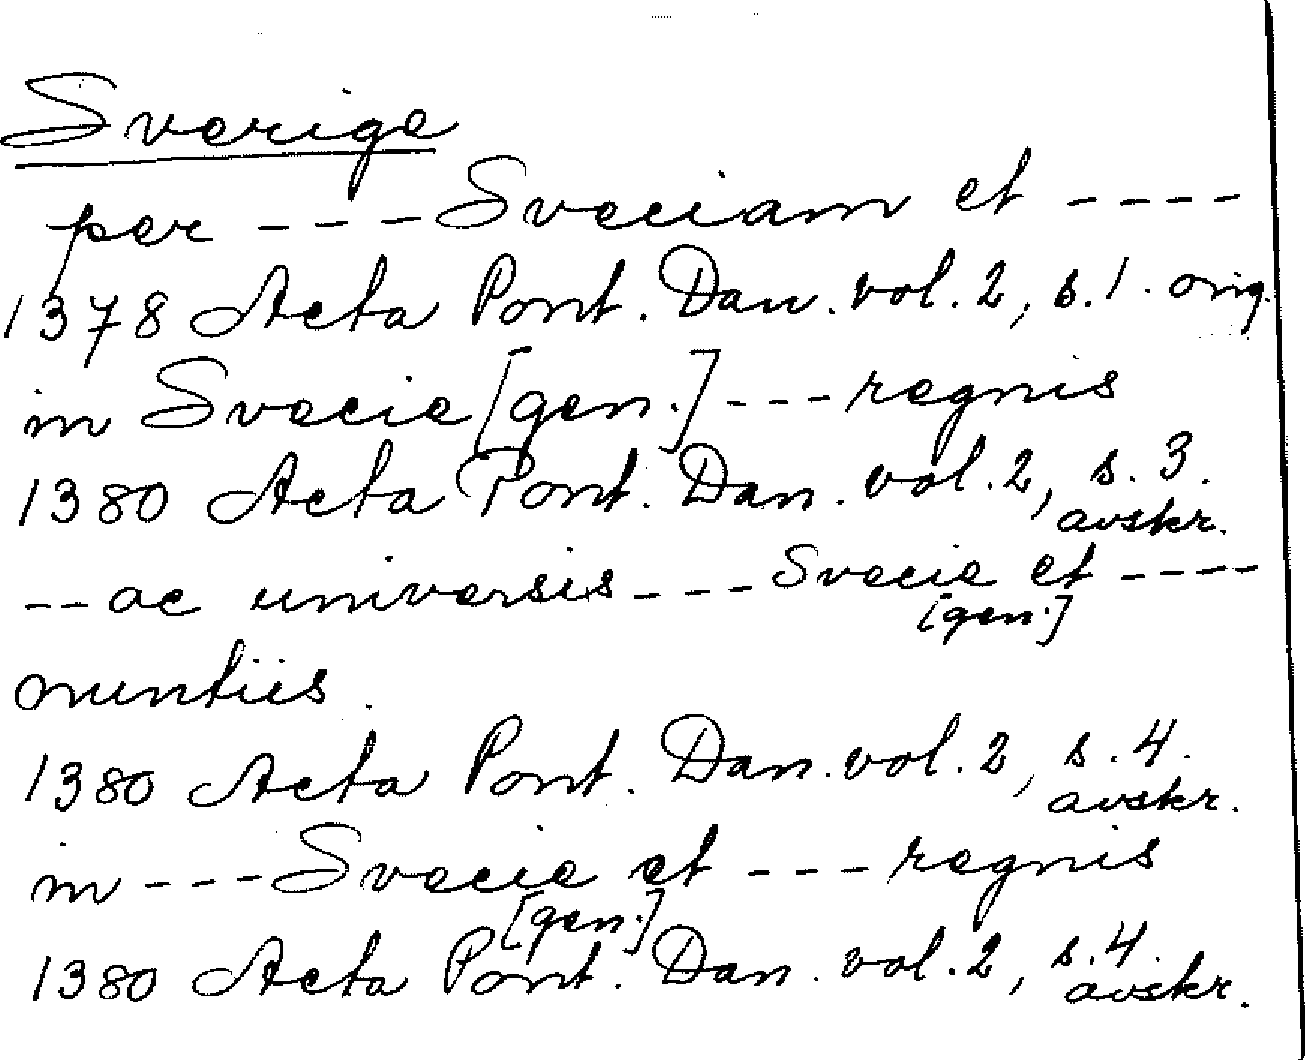 Sverige
per --- Sveciam et ----
1378 Acta Pont. Dan. vol. 2, s. 1. orig.
in Svecie [gen.] --- regnis
1380 Acta Pont. Dan. vol. 2, s. 3.
avskr.
-- ac universis --- Svecie et ----
[gen.]
nuntiis.
1380 Acta Pont. Dan. vol. 2, s. 4.
avskr.
in --- Svecie et --- regnis
[gen.]
1380 Acta Pont. Dan. vol. 2, s. 4.
avskr.